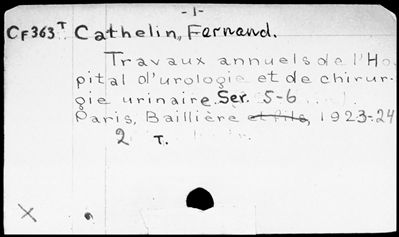 -1-
CF363 T Cathelin, Fernand.
Travaux annuels de l'Ho
pital d'urologie et de chirur-
gie urinaire. Ser. 5-6
Paris, Baillière et fils, 1923-24
2 T.
X